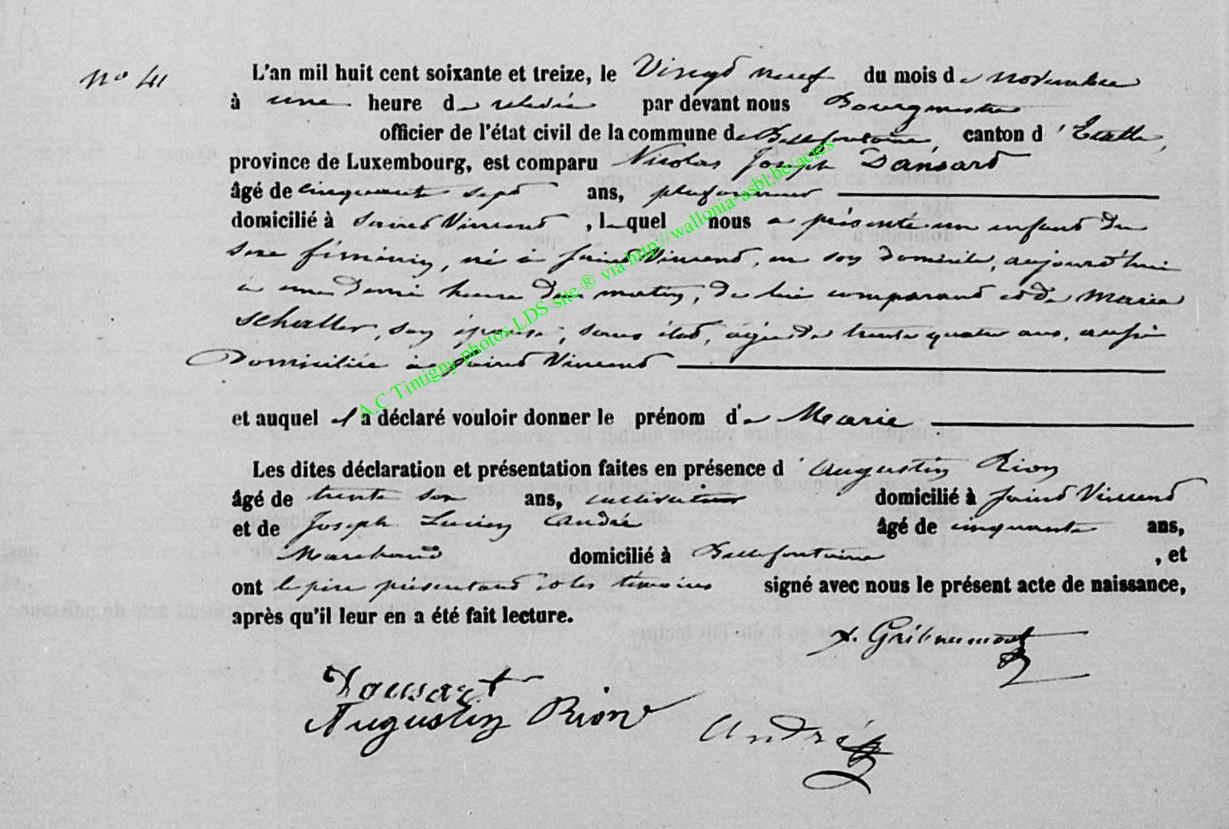 n° 41
L'an mil huit cent soixante et treize, le Vingt neuf du mois de novembre
à une heure de relevée par devant nous Bourgmestre
officier de l'état civil de la commune de Bellefontaine, canton d'Etalle,
province de Luxembourg, est comparu Nicolas Joseph Dansard
âgé de cinquante sept ans, plafonneur
domicilié à Saint Vincent, lequel nous a présenté un enfant du
sexe féminin, né à Saint Vincent, en son domicile, aujourd'hui
à une demie heure du matin, de lui comparant et de Maria
Schaller, son épouse, sans état, âgée de trente quatre ans, aussi
Domiciliée à Saint Vincent
et auquel il a déclaré vouloir donner le prénom de Marie
Les dites déclaration et présentation faites en présence d'Augustin Rion
âgé de trente ans, cultivateur domicilié à Saint Vincent
et de Joseph Lucien André âgé de cinquante ans,
Marchand domicilié à Bellefontaine, et
ont le père présentant et les témoins signé avec nous le présent acte de naissance,
après qu'il leur en a été fait lecture.
Gribaumont
Dansart
Augustin Rion André
A.C Tintigny photos LDS site ® via http://wallonia-asbl.be/actes